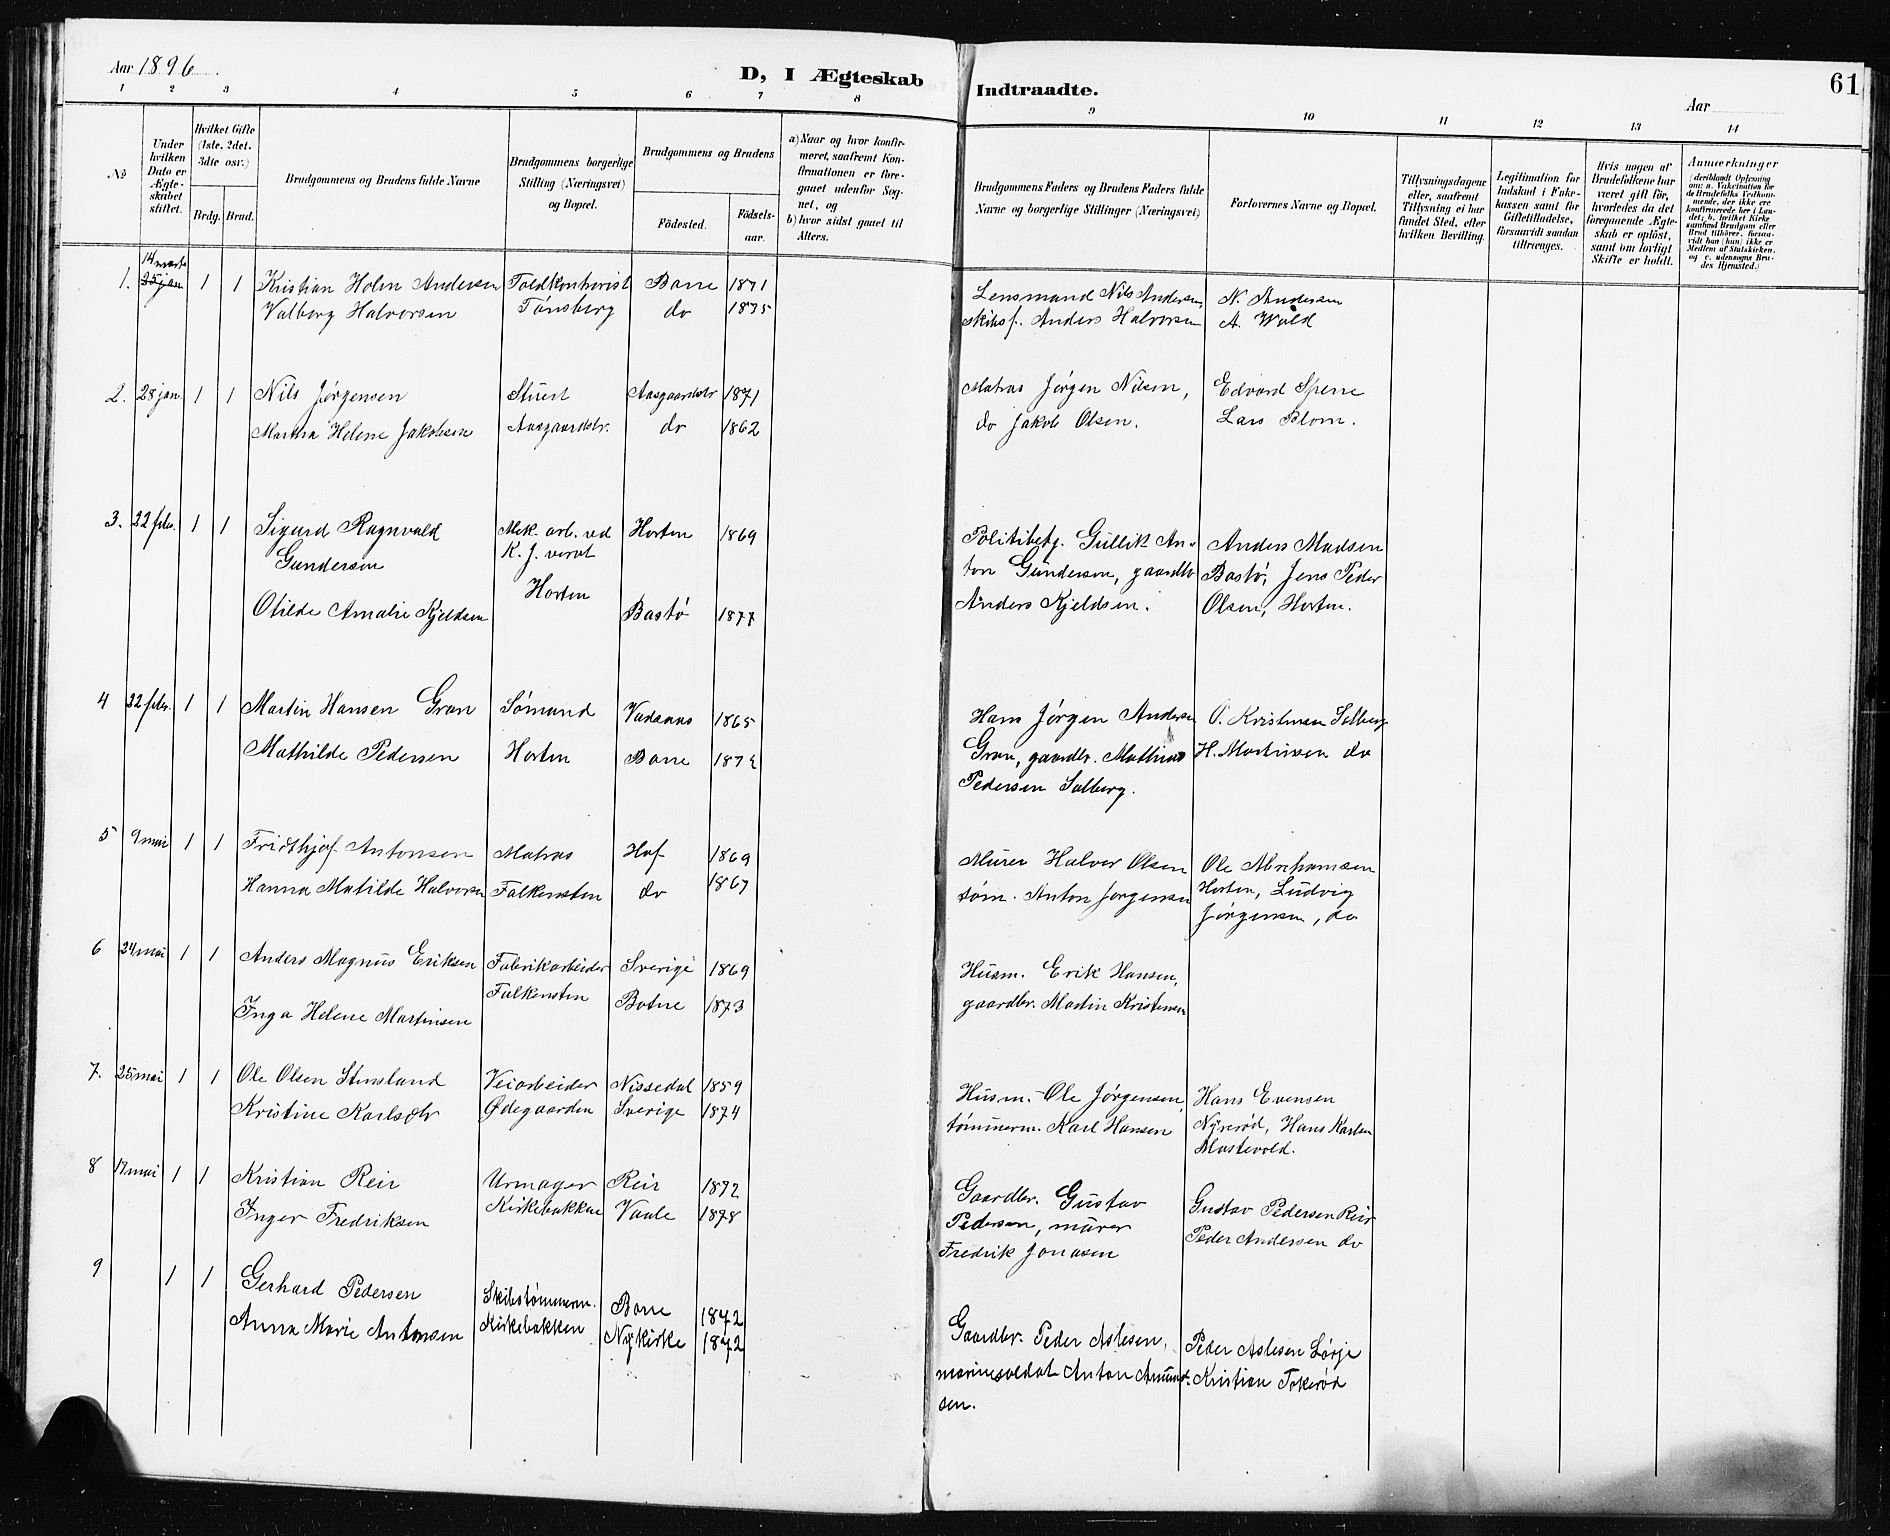 Aar 1896
D, I Ægteskab Indtraadte.
Aar
61
1 2 3 4 5 6 7 8 9 10 11 12 13 14
No
Under hvilken Dato er Ægteskabet stiftet.
Hvilket Gifte (1ste, 2det. 3die osv.)
Brdg. Brud.
Brudgommens og Brudens fulde Navne
Brudgommens borgerlige Stilling (Næringsvei) og Bopæl.
Brudgommens og Brudens
Fødested. Fødselsaar.
a) Naar og hvor konfirmeret, saafremt Konfirmationen er foregaaet udenfor Sognet, og
b) hvor sidst gaaet til Alters.
Brudgommens Faders og Brudens Faders fulde Navne og borgerlige Stillinger (Næringsvei)
Forlovernes Navne og Bopæl.
Tillysningsdagene eller, saafremt Tillysning ei har fundet Sted, efter hvilken Bevilling.
Legitimation for Indskud i Enkekassen samt for Giftetilladelse, forsaavidt saadan tiltrænges.
Hvis nogen af Brudefolkene har været gift før, hvorledes da det foregaaende Ægteskab er opløst, samt om lovligt Skifte er holdt.
Anmærkninger
(deriblandt Oplysning om: a. Vakcination for de Brudefolks Vedkommende, der ikke ere konfirmerede her i Landet; b. hvilket Kirkesamfund Brudgom eller Brud tilhører, forsaavidt han (hun) ikke er Medlem af Statskirken, og c. udensogns Brudes Hjemsted.)
14 marts
1. 25 jan 1 1 Kristian Holm Andersen Toldkontorist Borre 1871 Lensmand Nils Andersen, N. Andersen
Valborg Halvorsen Tønsberg do 1875 skibsf. Anders Halvorsen A. Wold
2. 28 jan. 1 1 Nils Jørgensen Stuert Aasgaardstr 1871 Matros Jørgen Nilsen, Edvard Spene
Martha Helene Jakobsen Aasgaardstr. do 1862 do Jakob Olsen. Lars Blom.
3. 22 febr. 1 1 Sigurd Ragnvald Mek. arb. ved Horten 1869 Politibetj. Gullik An- Anders Madsen
Gundersen K. J. verst ton Gundersen, gaardbr Bastø, Jens Peder
Horten Anders Kjeldsen. Olsen, Horten.
Otilde Amalie Kjeldsen Bastø 1877
4 22 febr. 1 1 Martin Hansen Gran Sømand Vadsaas 1865 Hans Jørgen Andersen O. Kristensen Solberg
Mathilde Pedersen Horten Borre 1872 Gran, gaardbr. Mathias H. Martinsen do
Pedersen Solberg.
5 9 mai 1 1 Fridthjof Antonsen Matros Hof 1869 Murer Halvor Olsen Ole Abrahamsen
Hanna Matilde Halvorsen Falkensten do 1867 tøm. Anton Jørgensen Horten, Ludvig
Jørgensen, do
6 24 mai 1 1 Anders Magnus Eriksen Fabrikarbeider Sverige 1869 Husm. Erik Hansen,
Inga Helene Martinsen Falkensten Botne 1873 gaardbr. Martin Kristensen
7. 25 mai 1 1 Ole Olsen Stensland Veiarbeider Nissedal 1859 Husm. Ole Jørgensen, Hans Evensen
Kristine Karlsdtr Ødegaarden Sverige 1874 tømmerm. Karl Hansen Nyrerød, Hans Karlsen
Mastevold.
8 17 mai 1 1 Kristian Reir Urmager Reir 1872 Gaardbr. Gustav Gustav Pedersen Reir
Inger Fredriksen Kirkebakken Vaale 1878 Pedersen, murer Peder Andersen do
Fredrik Jonasen
9 1 1 Gerhard Pedersen Skibstømmerm. Borre 1872 Gaardbr. Peder Aslesen, Peder Aslesen Lørje
Anna Marie Antonsen Kirkebakken Nykirke 1872 marinesoldat Anton Amund- Kristian Tokerød
sen.